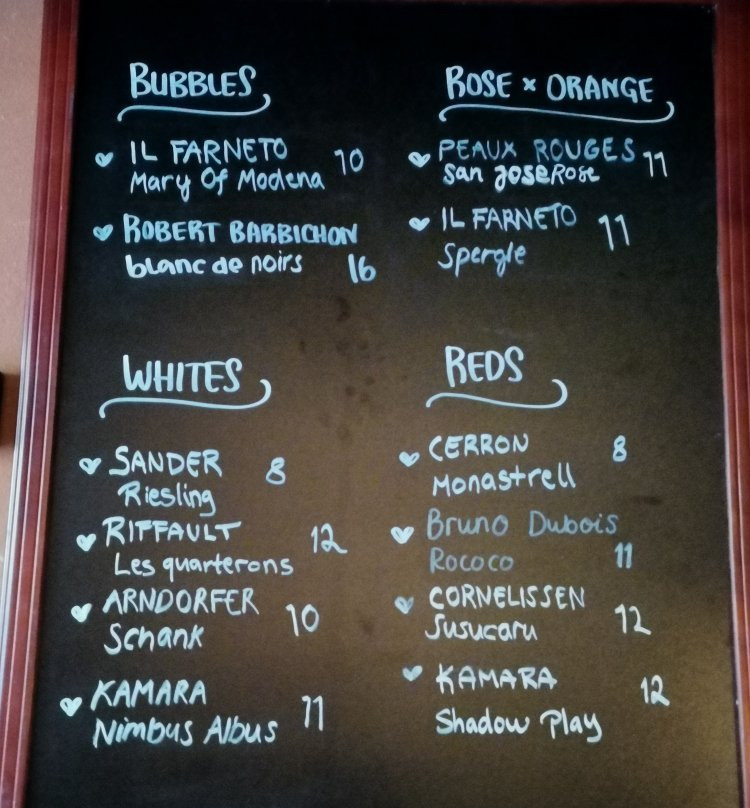 BUBBLES
IL FARNETO 10
Mary Of Modena
ROBERT BARBICHON
blanc de noirs 16
ROSE x ORANGE
PEAUX ROUGES 11
San Jose Rose
IL FARNETO 11
Spergle
WHITES
SANDER 8
Riesling
RIFFAULT 12
Les quarterons
ARNDORFER 10
Schank
KAMARA 11
Nimbus Albus
REDS
CERRON 8
Monastrell
Bruno Dubois
Rococo 11
CORNELISSEN 12
Susucaru
KAMARA 12
Shadow Play